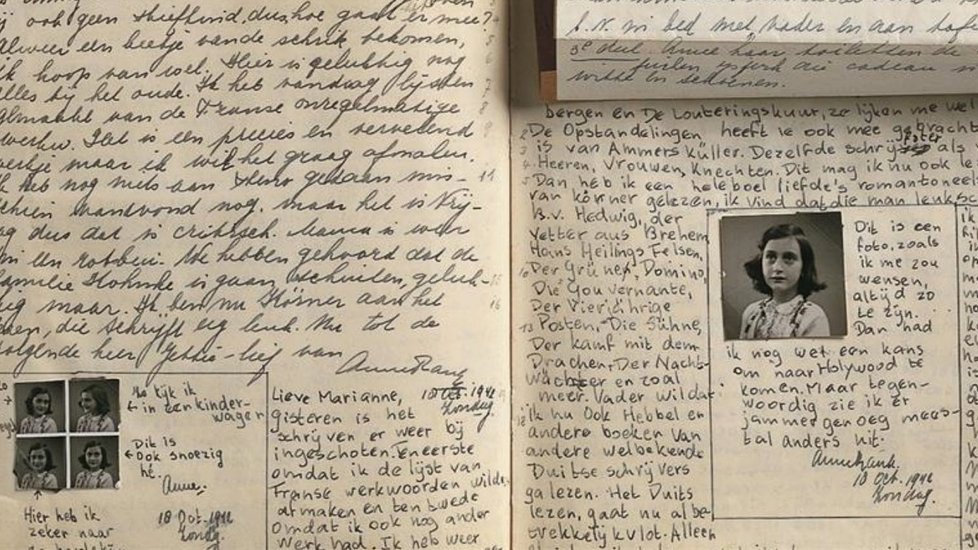 ook geen stiefkind, dus hoe gaat er mee?
alweer een beetje van de schrik bekomen,
ik hoop van wel. Hier is gelukkig nog
alles bij het oude. Ik heb vandaag lijsten
afgemaakt van de Franse onregelmatige
werkw. Het is een precies en vervelend
werkje maar ik wil het graag afmaken.
Ik heb nog niets aan steno gedaan mis-
schien vanavond nog, maar het is Vrij-
dag dus dat is critisch. Mama is weer
in een
familie is gaan scheiden, geluk-
kig maar. Ik ben nu Körner aan het
lezen, die schrijft erg leuk. Nu tot de
volgende keer
Anne Frank
18 Oct. 1942
Zondag
Zo kijk ik
in een kinder-
wagen
Dit is
ook snoezig
hè.
Anne.
Hier heb ik
zeker naar
18 Oct. 1942
Zondag
Lieve Marianne,
gisteren is het
schrijven er weer bij
ingeschoten. En eerste
omdat ik de lijst van
Franse werkwoorden wilde
afmaken en ten twede
omdat ik ook nog ander
werk had. Ik heb weer
in bed met vader en aan
3e deel. Anne haar
witte en
bergen en De Louteringskuur, ze lijken me wel
De Opstandelingen heeft ie ook mee gebracht
is van Ammers Küller. Dezelfde schrijfster als
Heeren, Vrouwen, Knechten. Dit mag ik nu ook le
Dan heb ik een heleboel liefde's romantoneel
van körner gelezen, ik vind dat die man leuk sc
B.v. Hedwig, der
Vetter aus Brehem
Hans Heilings Felsen,
Der Grüne, Domino,
Die Gouvernante,
Der Vierjährige
Posten, Die Sühne,
Der Kauf mit dem
Drachen, Der Nacht-
wächter en zoal
meer. Vader wil dat
ik nu ook Hebbel en
andere boeken van
andere welbekende
Duitse schrijvers
ga lezen. Het Duits
lezen, gaat nu al be-
trekkelijk vlot. Alleen
Dit is een
foto, zoals
ik me zou
wensen,
altijd zo
te zijn.
Dan had
ik nog wel een kans
om naar Holywood te
komen. Maar tegen-
woordig zie ik er
jammer genoeg mees-
tal anders uit.
Anne Frank.
18 Oct. 1942
Zondag.